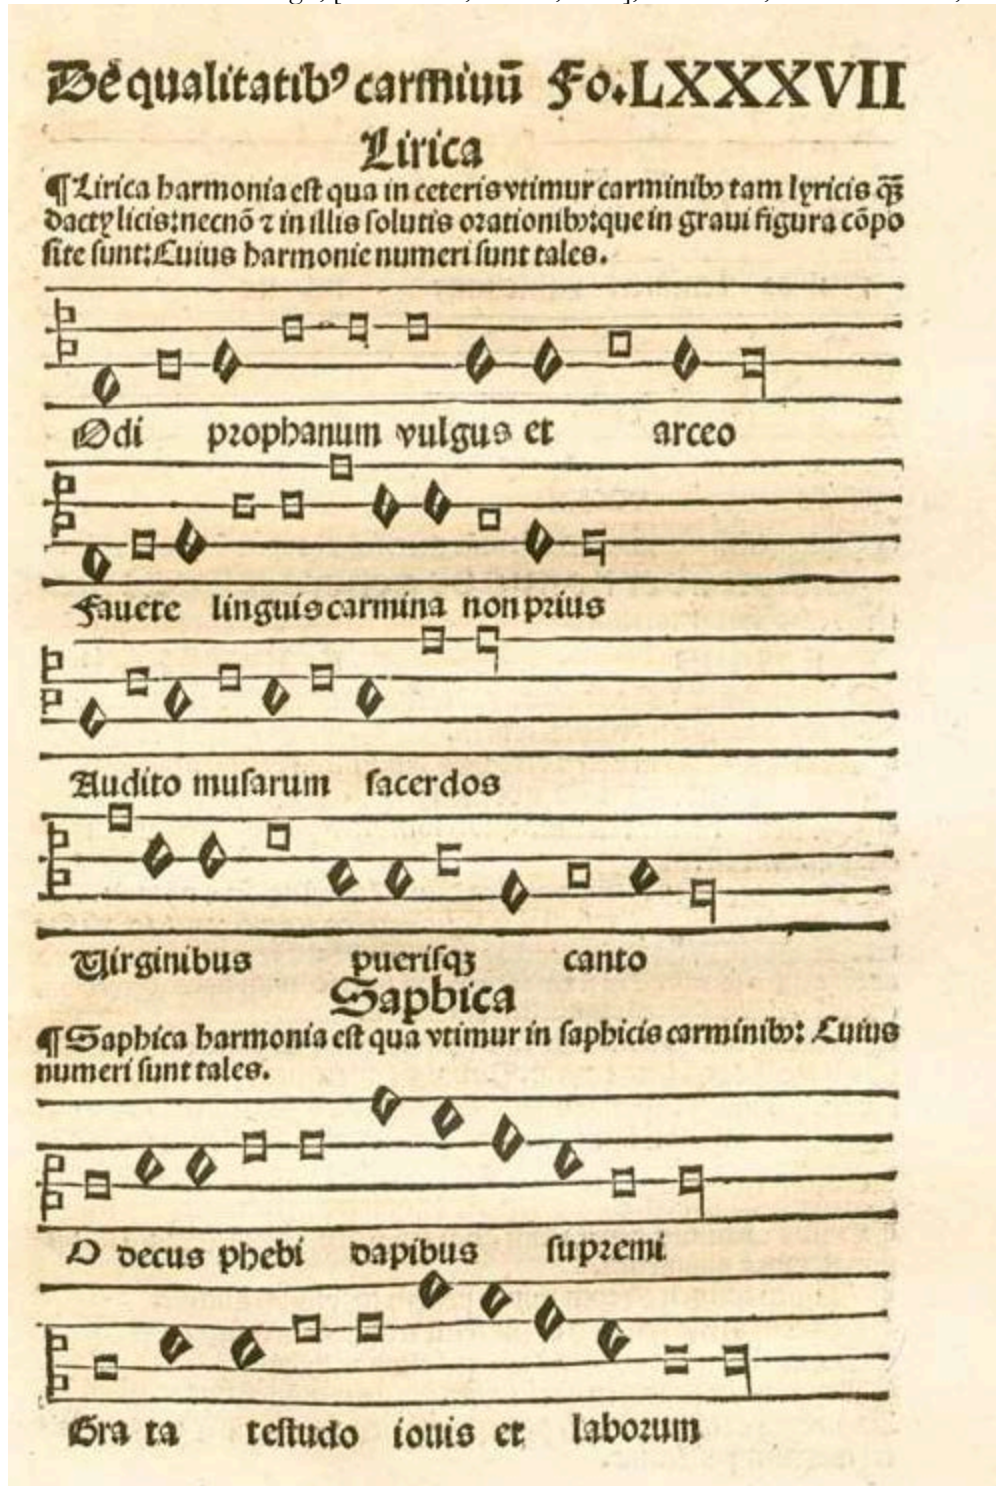 De qualitatibꝰ carmiuū Fo.LXXXVII
Lirica
¶Lirica harmonia est qua in ceteris vtimur carminibꝫ tam lyricis qꝫ̄
dactylicis:necnō ⁊ in illis solutis orationibꝫ:que in graui figura cōpo
site sunt:Cuius harmonie numeri sunt tales.
Odi prophanum vulgus et arceo
Fauete linguis carmina non prius
Audito musarum sacerdos
Uirginibus puerisqꝫ canto
Saphica
¶Saphica harmonia est qua vtimur in saphicis carminibꝫ: Cuius
numeri sunt tales.
O decus phebi dapibus supremi
Gra ta testudo iouis et laborum